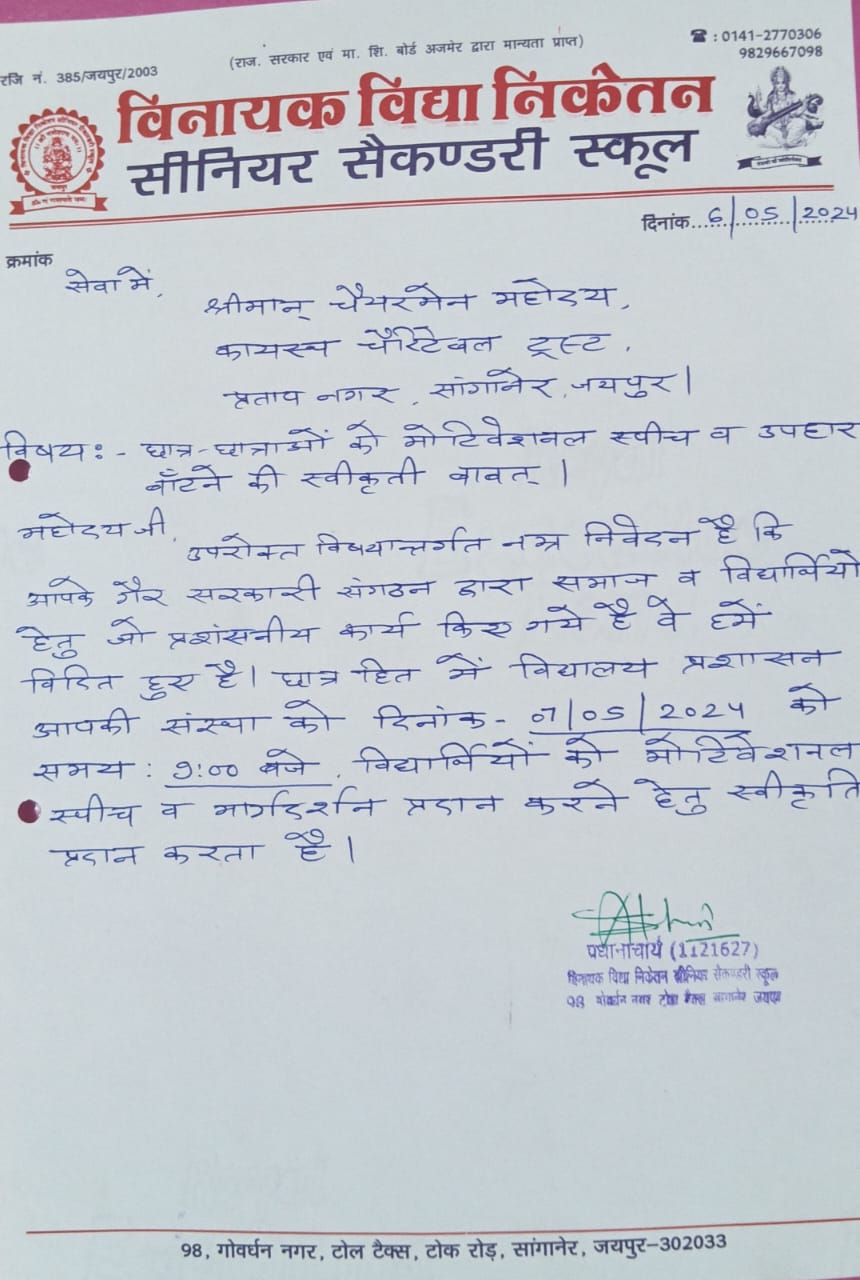 रजि नं. 385/जयपुर/2003
(राज. सरकार एवं मा. शि. बोर्ड अजमेर द्वारा मान्यता प्राप्त)
☎ : 0141-2770306
9829667098
विनायक विद्या निकेतन
सीनियर सैकण्डरी स्कूल
जयपुर
दिनांक...6/05/2024
क्रमांक
सेवा में,
श्रीमान् चैयरमेन महोदय,
कायस्थ चैरिटेबल ट्रस्ट,
प्रताप नगर, सांगानेर, जयपुर।
विषय:- छात्र-छात्राओं को मोटिवेशनल स्पीच व उपहार
बाँटने की स्वीकृती बावत्।
महोदय जी,
उपरोक्त विषयान्तर्गत नम्र निवेदन है कि
आपके गैर सरकारी संगठन द्वारा समाज व विद्यार्थियों
हेतु जो प्रशंसनीय कार्य किए गये है वे हमें
विदित हुए है। छात्र हित में विद्यालय प्रशासन
आपकी संस्था को दिनांक- 07/05/2024 को
समय: 9:00 बजे, विद्यार्थियों को मोटिवेशनल
स्पीच व मार्गदर्शन प्रदान करने हेतु स्वीकृति
प्रदान करता है।
प्रधानाचार्य (1121627)
विनायक विद्या निकेतन सीनियर सैकण्डरी स्कूल
98 गोवर्धन नगर टोल टैक्स सांगानेर जयपुर
98, गोवर्धन नगर, टोल टैक्स, टोक रोड़, सांगानेर, जयपुर–302033